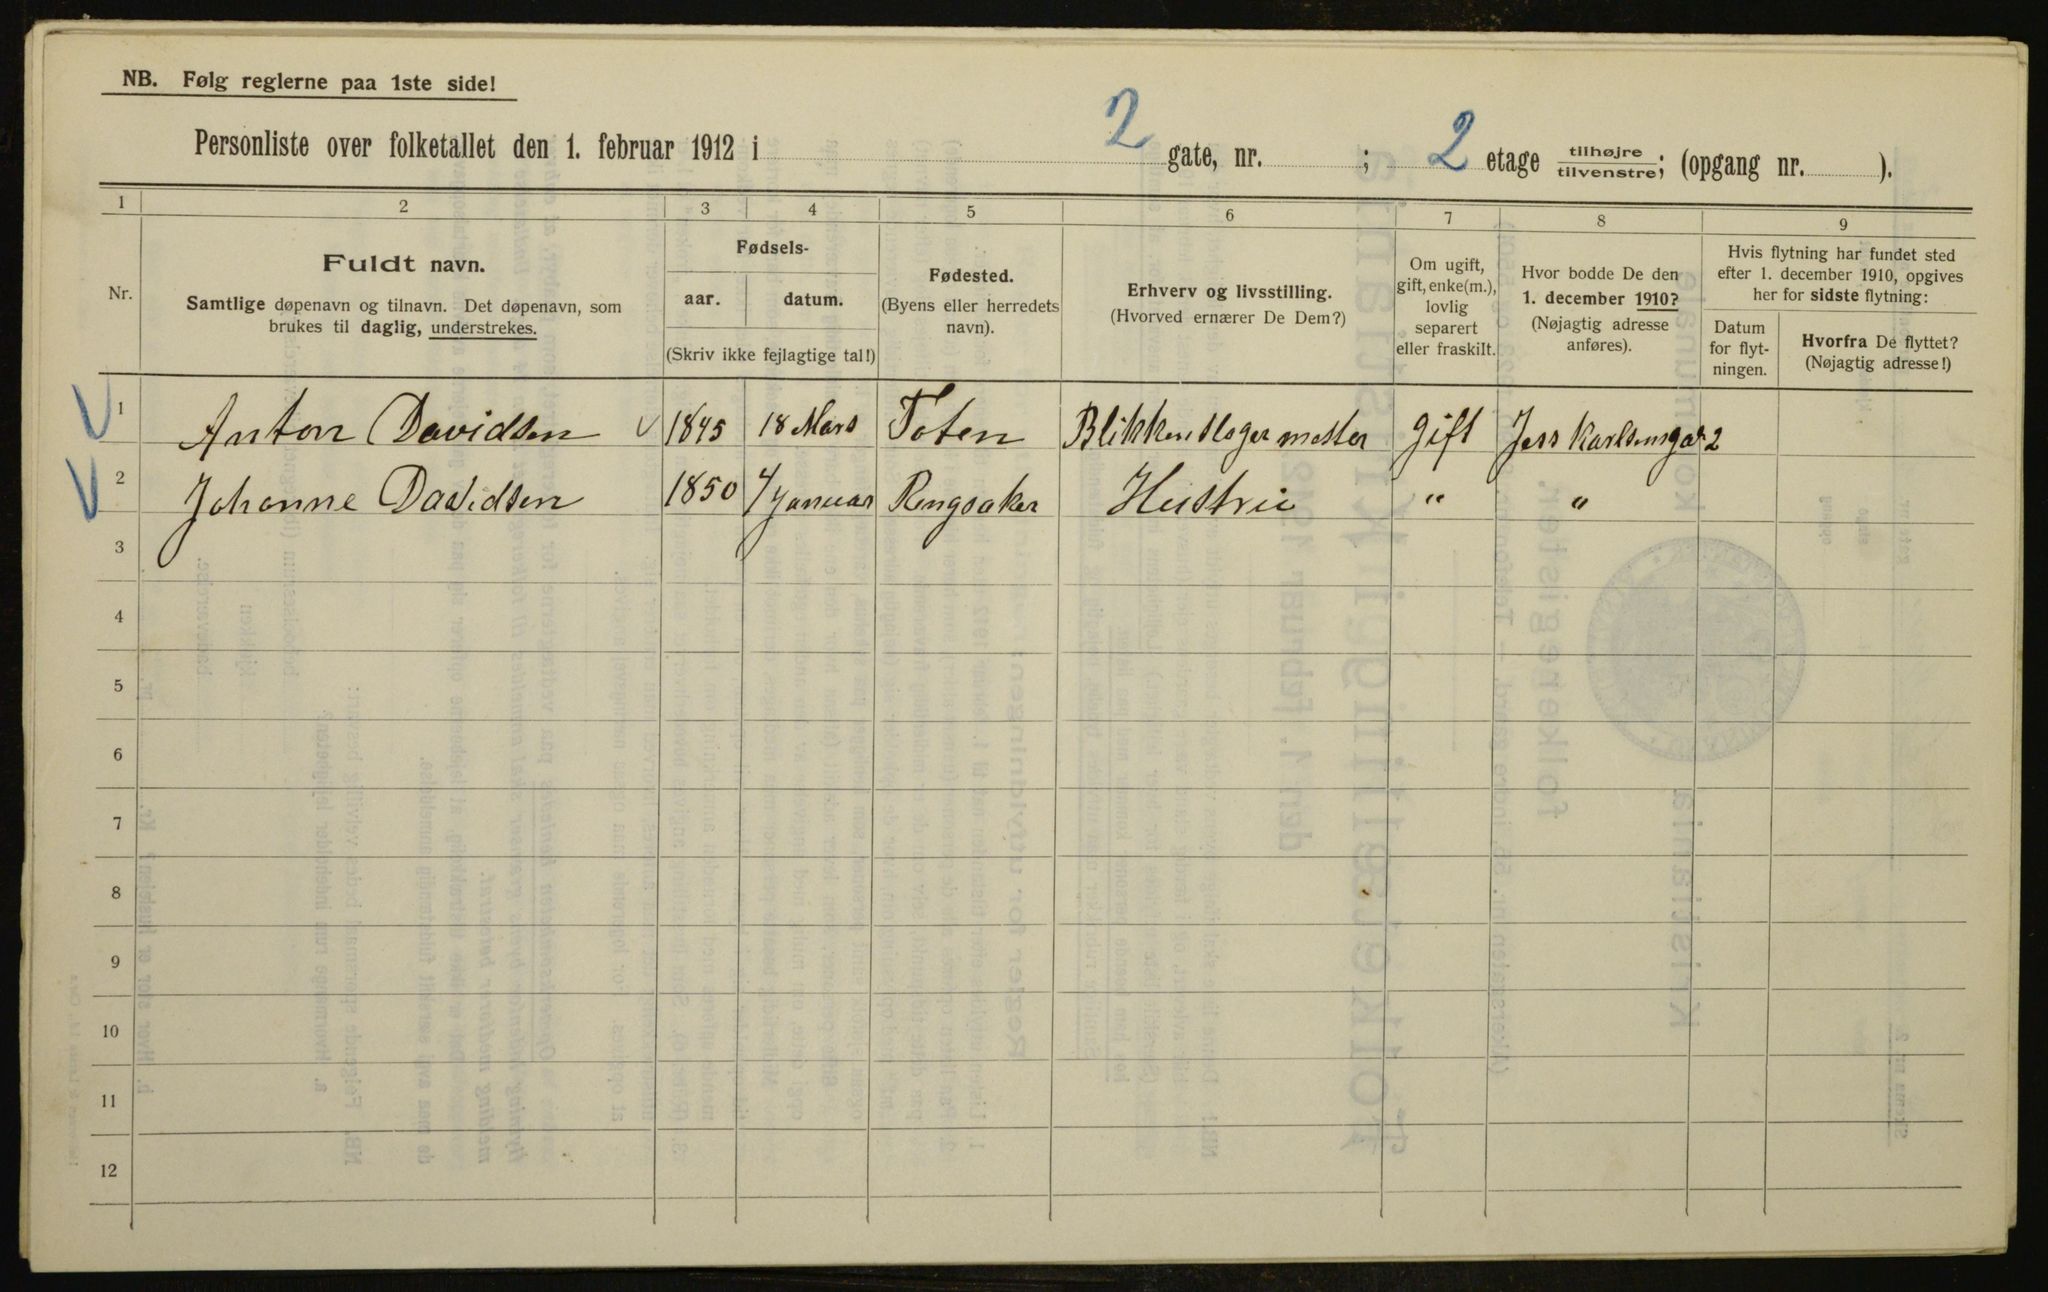 NB. Følg reglerne paa 1ste side!
Personliste over folketallet den 1. februar 1912 i 2 gate, nr. ; 2 etage tilhøjre tilvenstre; (opgang nr. ).
1 2 3 4 5 6 7 8 9
Nr.
Fuldt navn.
Samtlige døpenavn og tilnavn. Det døpenavn, som
brukes til daglig, understrekes.
Fødsels-
aar. datum.
(Skriv ikke fejlagtige tal!)
Fødested.
(Byens eller herredets
navn).
Erhverv og livsstilling.
(Hvorved ernærer De Dem?)
Om ugift,
gift, enke(m.),
lovlig
separert
eller fraskilt.
Hvor bodde De den
1. december 1910?
(Nøjagtig adresse
anføres).
Hvis flytning har fundet sted
efter 1. december 1910, opgives
her for sidste flytning:
Datum
for flyt-
ningen.
Hvorfra De flyttet?
(Nøjagtig adresse!)
1 Anton Davidsen 1845 18 Mars Toten Blikkenslagermester gift Jess Karlsensga 2
2 Johanne Davidsen 1850 4 Januar Ringsaker Hustru " "
3
4
5
6
7
8
9
10
11
12